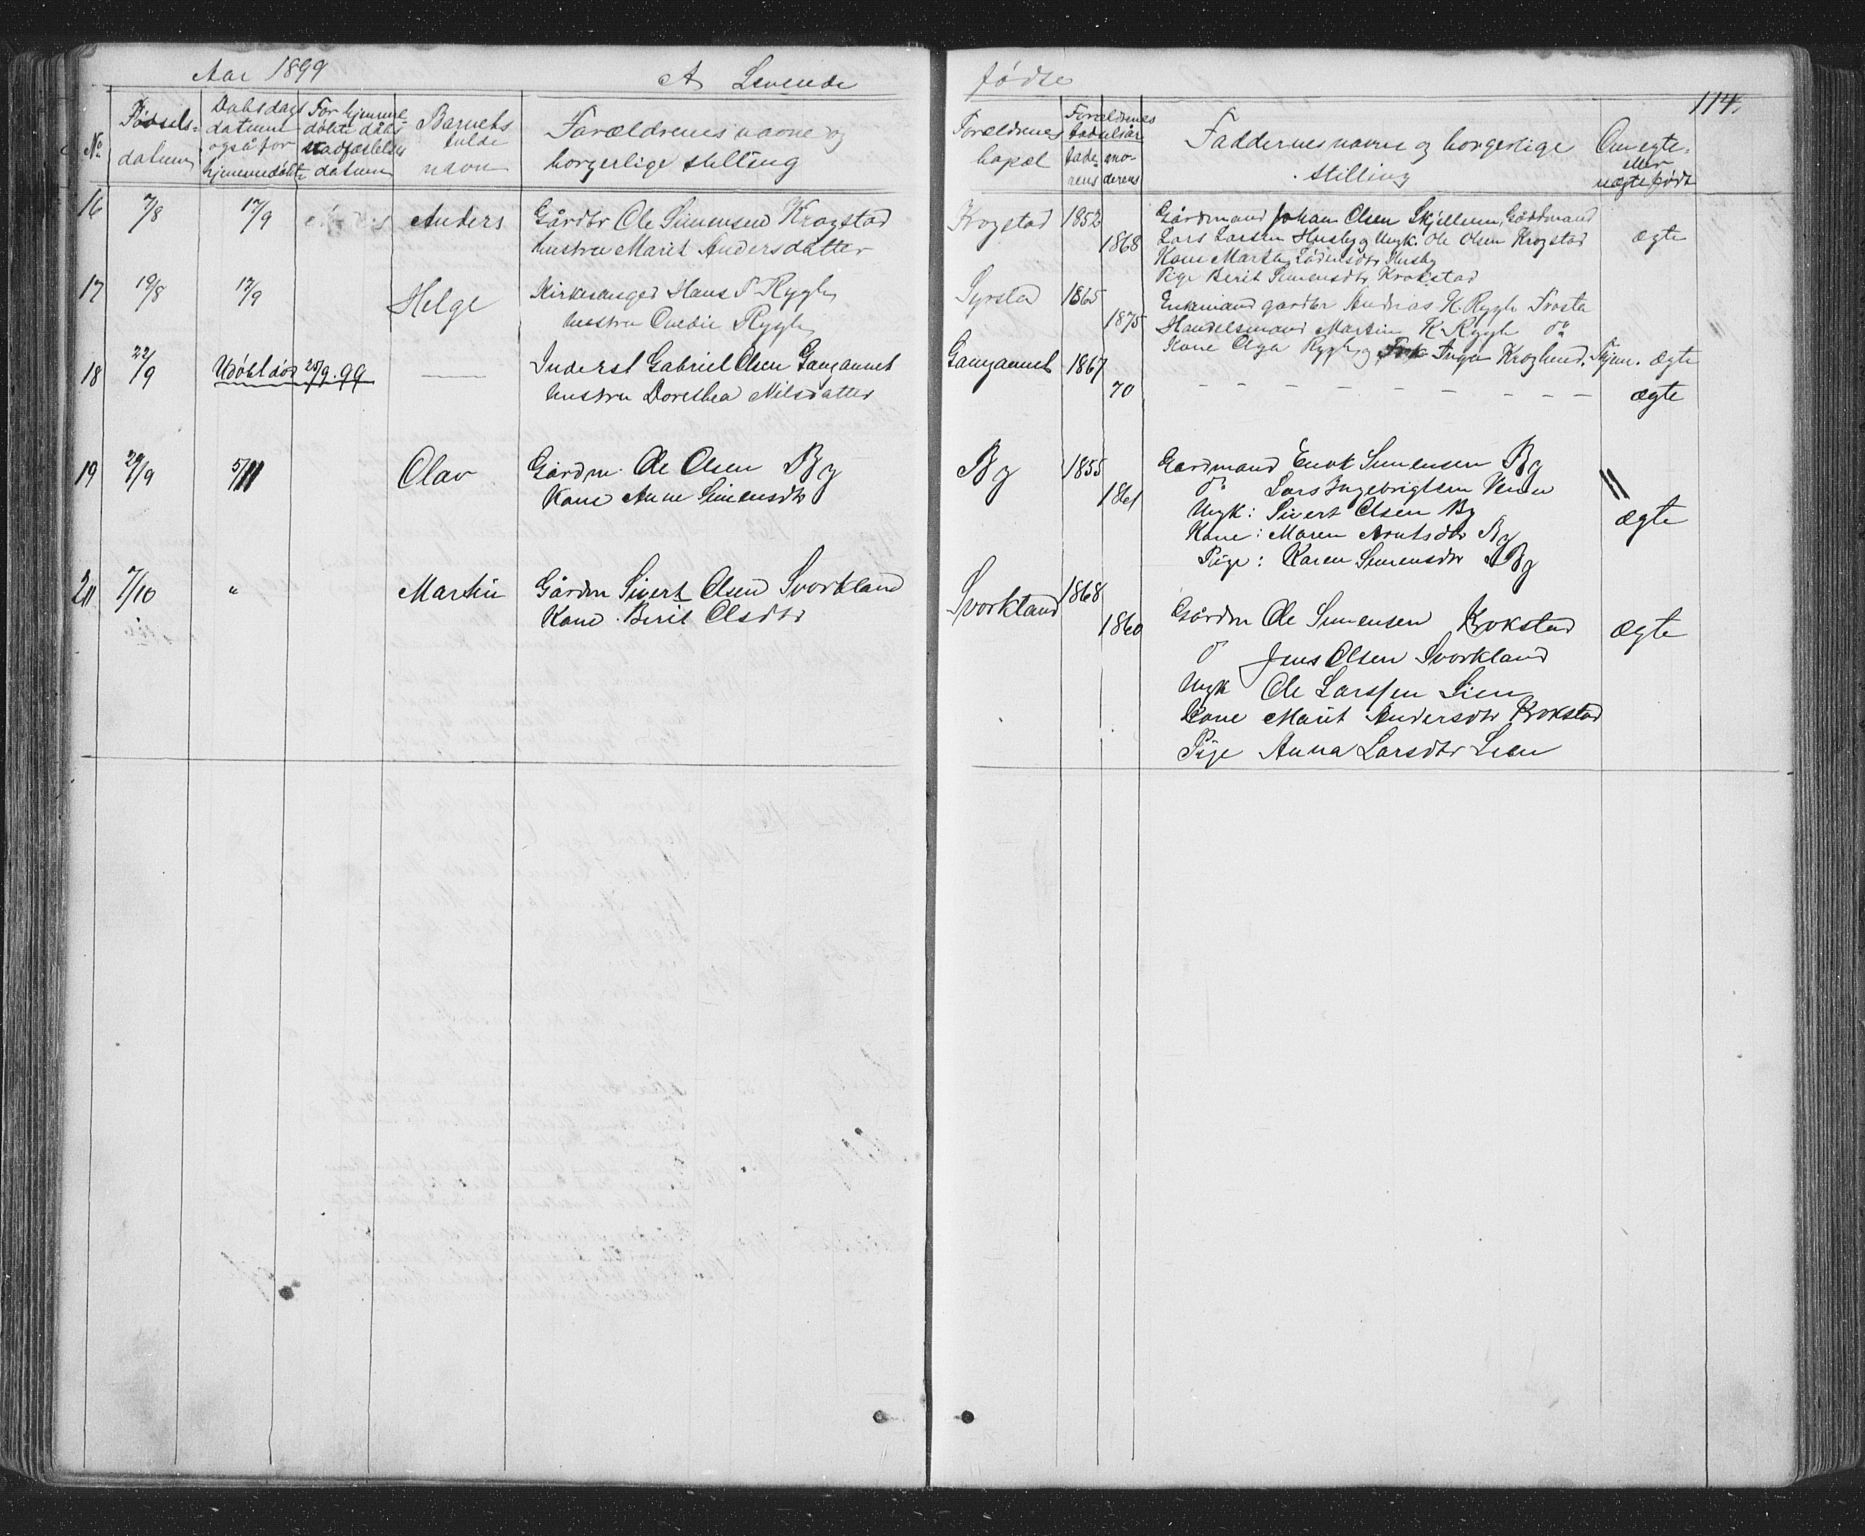 Aar 1899 A Levende fødte
114.
No Fødsels- datum Dåbsdags datum også for hjemmedøbte For hjemme- døbte dåbs stadfæstelses datum Barnets fulde navn Forældrenes navne og borgerlige stilling Forældrenes bopæl Forældrenes fødselsår faderens moderens Faddernes navne og borgerlige stilling Om egte eller uegte født
16 7/8 17/9 Anders Gårdbr Ole Simensen Krogstad Krogstad 1852 Gårdmand Johan Olsen Skjellum, Gårdmand
hustru Marit Andersdatter 1868 Lars Larsen Husby Ungk. Ole Olsen Krogstad ægte
Kone Marit Husby
Pige Berit Simensdtr Krokstad
17 19/8 17/9 Helge Kirkesanger Hans P. Rygh Syrstad 1865 Enkemand gårdbr Andreas H. Rygh Frosta
hustru Rygh 1875 Handelsmand Martin K. Rygh do
Kone Olga Rygh og Inga Kroglund. ægte
18 22/9 Udøbt død 25/9.99 — Inderst Gabriel Olsen Gangaunet Gangaunet 1867
hustru Dorethea Nilsdatter 70 - - - - - - - - - ægte
19 29/9 5/11 Olav Gårdm. Ole Olsen By By 1855 Gårdmand Enok Simensen By
Kone Anne Simensdtr 1861 do Lars Ingebrigtsen
Ungk: Sivert Olsen By ægte
Kone: Maren Arntsdtr By
Pige: Karen Simensdtr By
20 7/10 " Martin Gårdm Sivert Olsen Svorkland Svorkland 1868
Kone Berit Olsdtr 1860 Gårdm Ole Simensen Krokstad ægte
do Jens Olsen Svorkland
Ungk Ole Larssen Lien
Kone Marit Andersdtr Krokstad
Pige Anna Larsdtr Lien